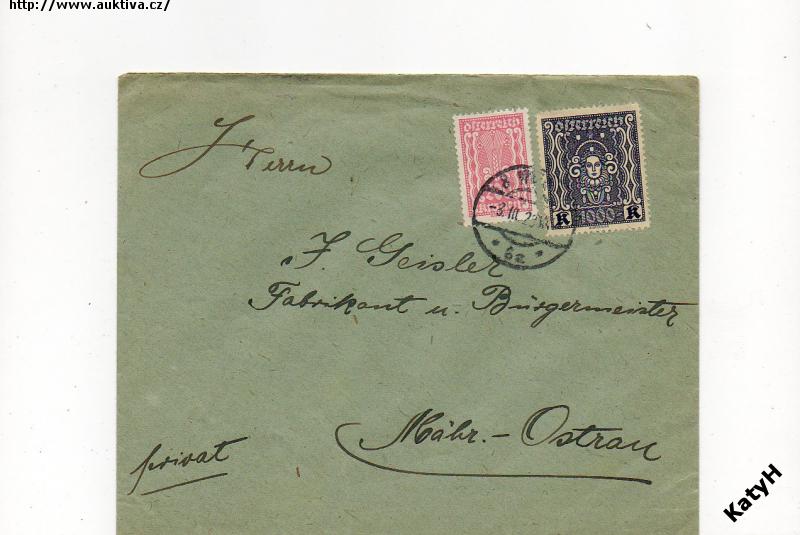 http://www.auktiva.cz/
österreich
österreich
K 1000 K
-3.III.23
* 6a *
Herrn
J. Geisler
Fabrikant u. Bürgermeister
Mähr.-Ostrau
privat
KatyH